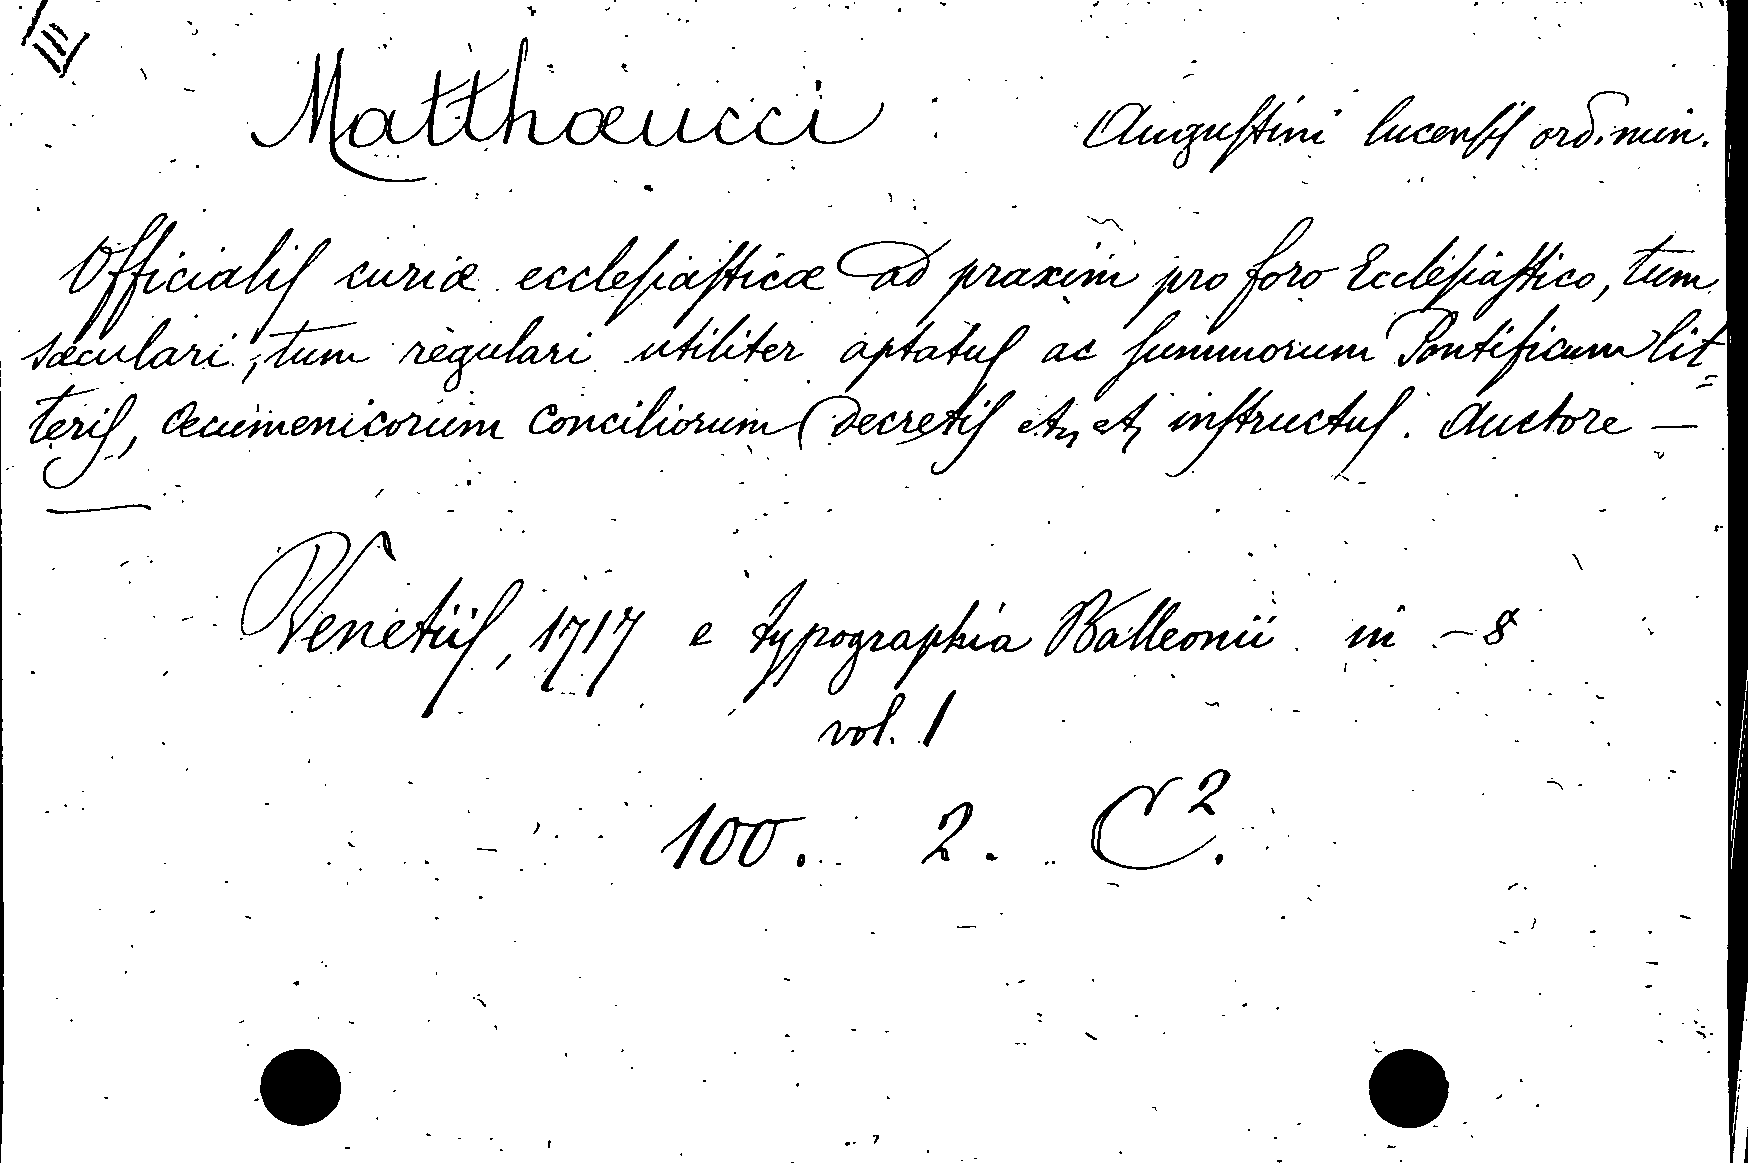 III
Matthæucci Augustini lucensis ord. min.
Officialis curiæ ecclesiasticæ ad praxim pro foro Ecclesiastico, tum
sæculari, tum regulari utiliter aptatus ac summorum Pontificum lit=
teris, Œcumenicorum Conciliorum Decretis etc, etc, instructus. Auctore —
Venetiis, 1717 e typographia Balleonii in - 8
vol. 1
100. 2. C².